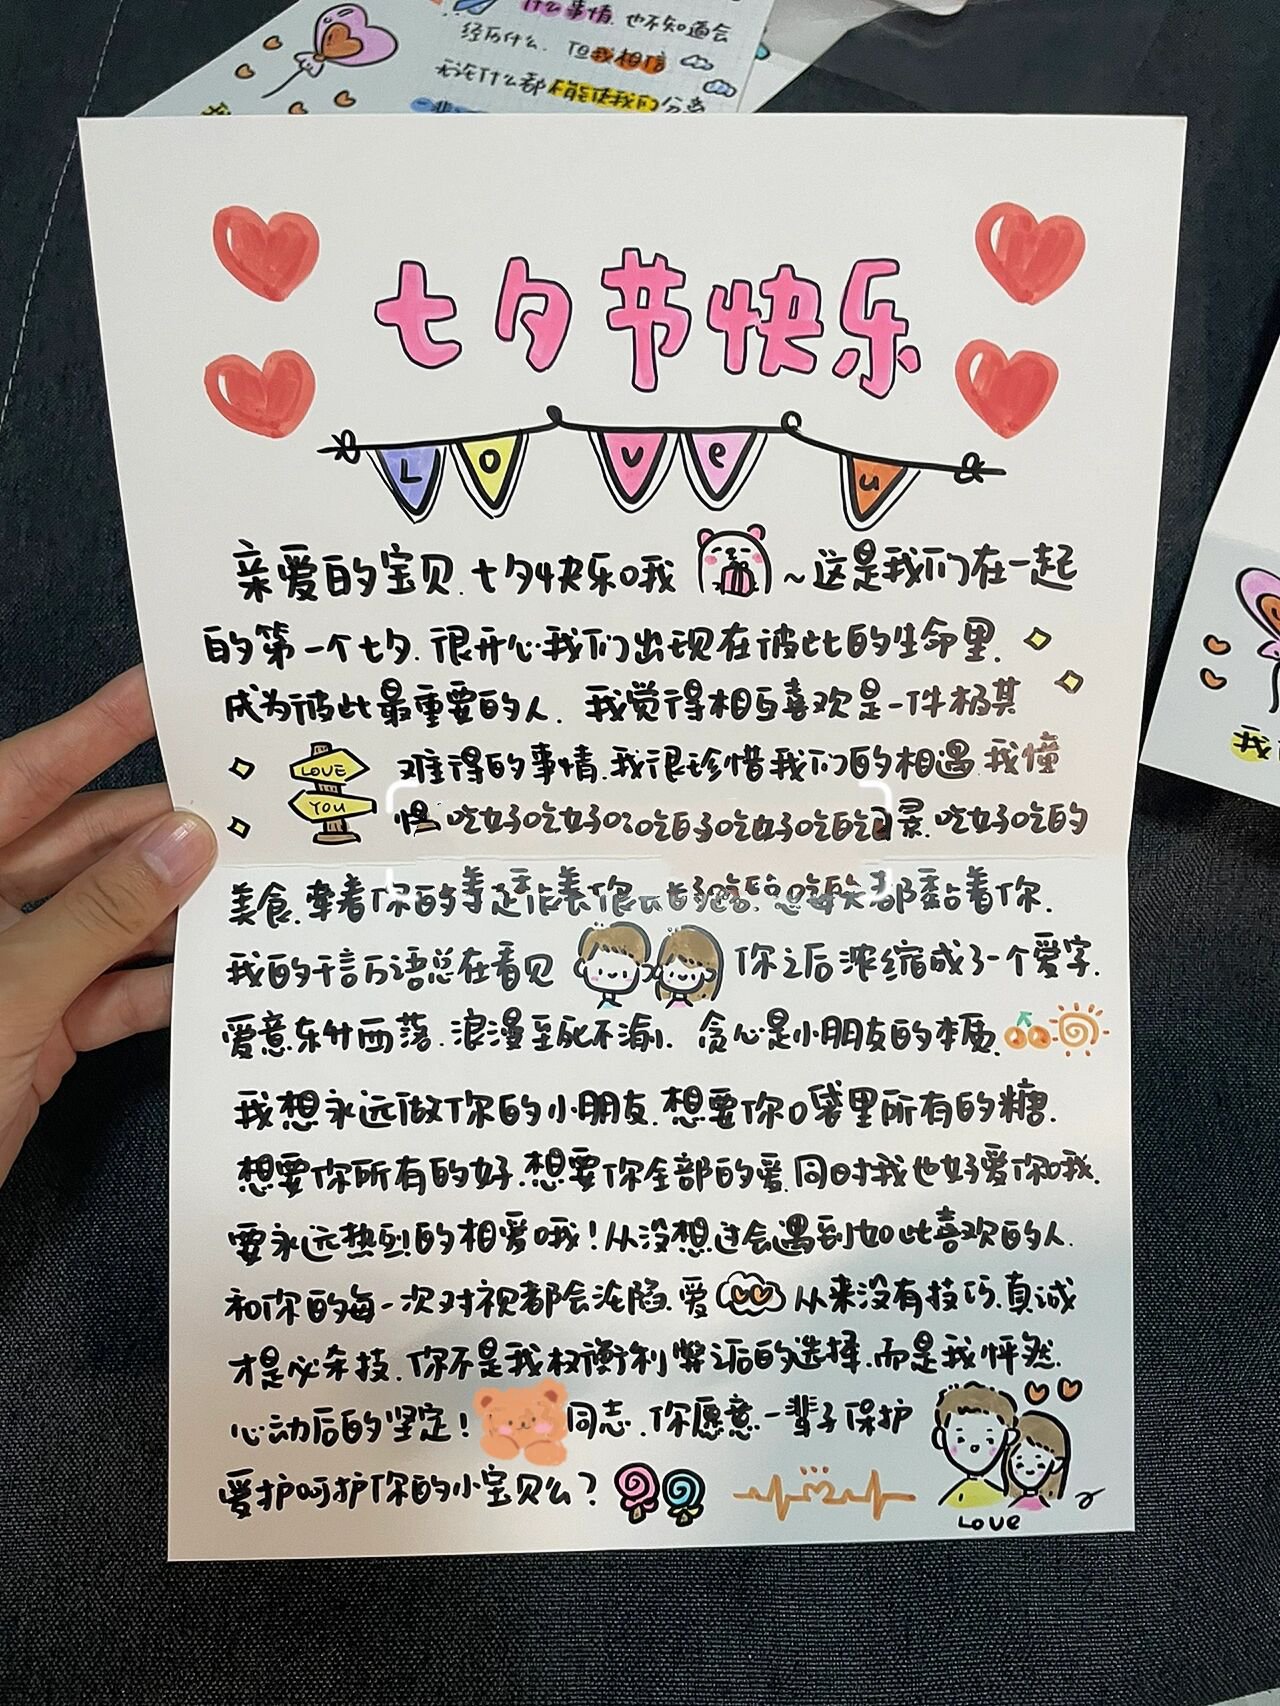 什么事情.也不知道会
经历什么.但我相信
无论什么都不能使我们分离
七夕节快乐
Love u
亲爱的宝贝.七夕快乐哦~这是我们在一起
的第一个七夕.很开心我们出现在彼此的生命里.
成为彼此最重要的人.我觉得相互喜欢是一件极其
LOVE
YOU
难得的事情.我很珍惜我们的相遇.我憧
吃好吃的
美食.牵着你的 都黏着你.
我的千言万语总在看见你之后浓缩成了一个爱字.
爱意东升西落.浪漫至死不渝.贪心是小朋友的本质.
我想永远做你的小朋友.想要你口袋里所有的糖.
想要你所有的好.想要你全部的爱.同时我也好爱你哦.
要永远热烈的相爱哦!从没想过会遇到如此喜欢的人.
和你的每一次对视都会沦陷.爱从来没有技巧.真诚
才是必杀技.你不是我权衡利弊后的选择.而是我怦然.
心动后的坚定!同志.你愿意一辈子保护
爱护呵护你的小宝贝么?
Love
我